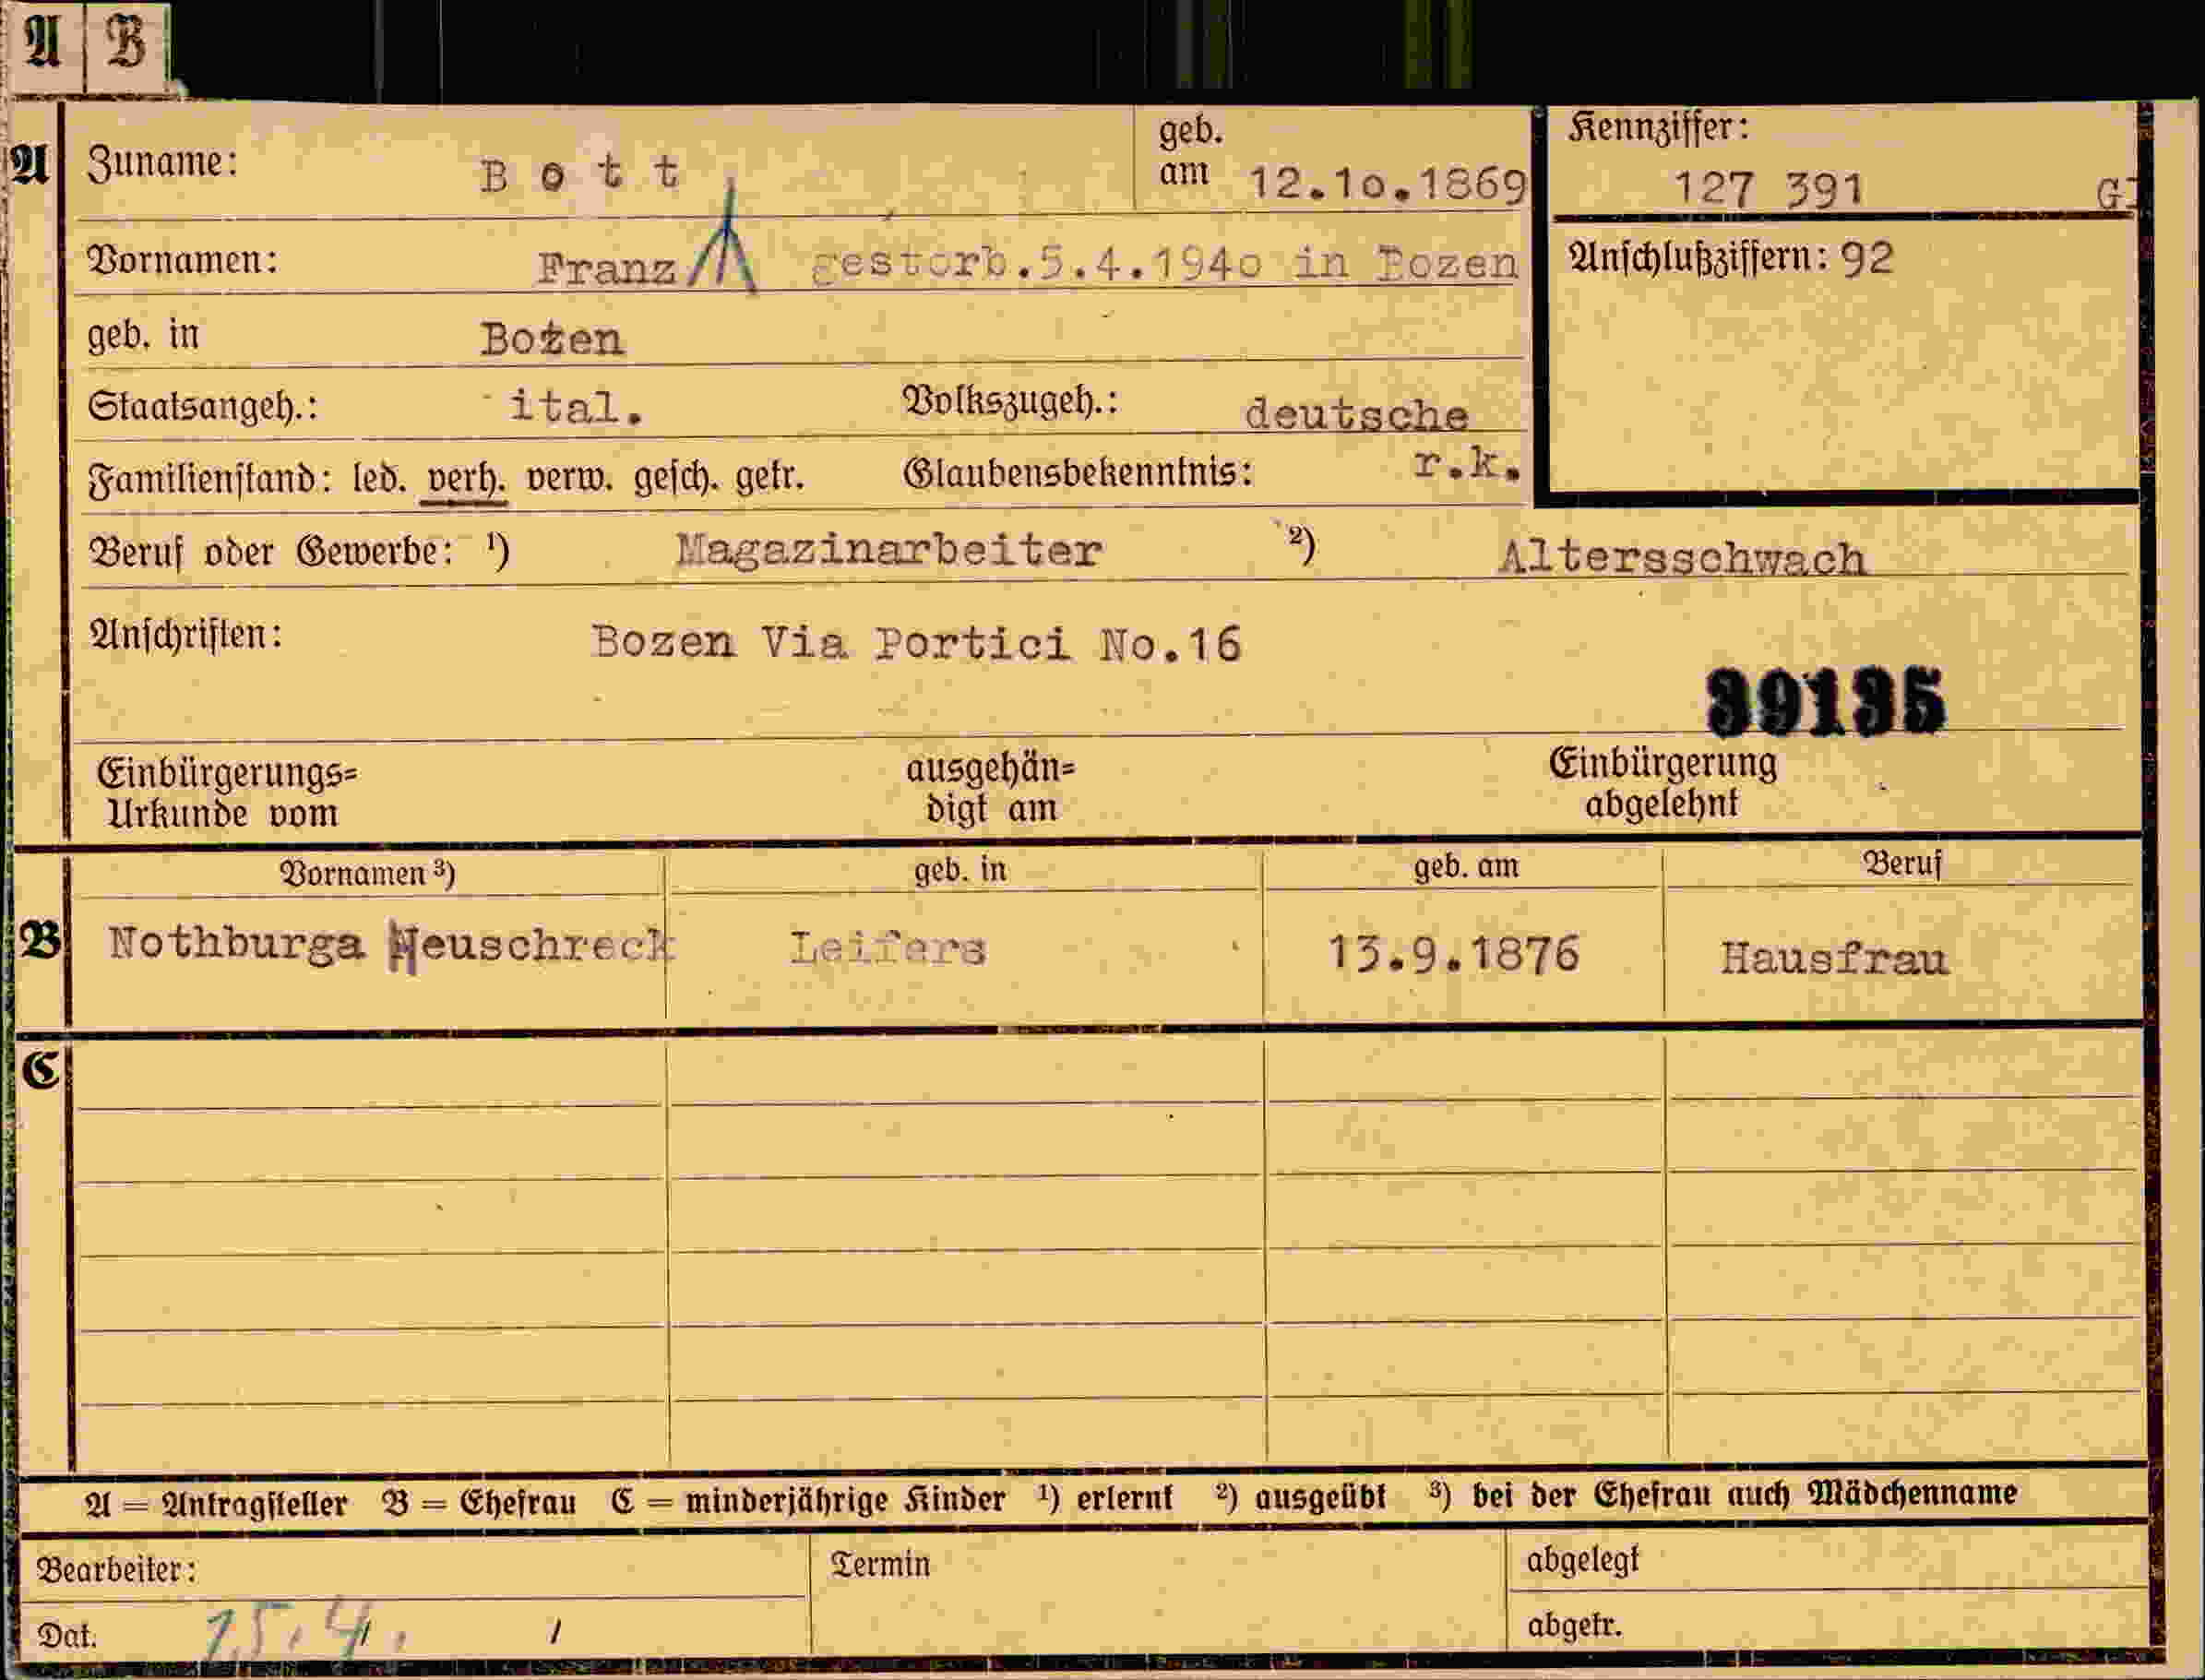 A B
A Zuname: Bott geb. am 12.10.1869 Kennziffer: 127 391
Vornamen: Franz gestorb.5.4.1940 in Bozen Anschlußziffern: 92
geb. in Bozen
Staatsangeh.: ital. Volkszugeh.: deutsche
Familienstand: led. verh. verw. gesch. getr. Glaubensbekenntnis: r.k.
Beruf oder Gewerbe: ¹) Magazinarbeiter ²) Altersschwach
Anschriften: Bozen Via Portici No.16
39135
Einbürgerungs= ausgehän= Einbürgerung
Urkunde vom digt am abgelehnt
Vornamen ³) geb. in geb. am Beruf
B Nothburga Heuschreck Leifers 13.9.1876 Hausfrau
C
A = Antragsteller B = Ehefrau C = minderjährige Kinder ¹) erlernt ²) ausgeübt ³) bei der Ehefrau auch Mädchenname
Bearbeiter: Termin abgelegt
Dat. 15.4. abgetr.